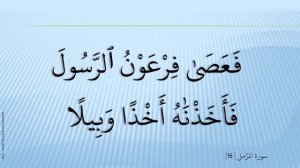 فَعَصَىٰ فِرْعَوْنُ ٱلرَّسُولَ
فَأَخَذْنَـٰهُ أَخْذًا وَبِيلًا
سورة المزمل [16]